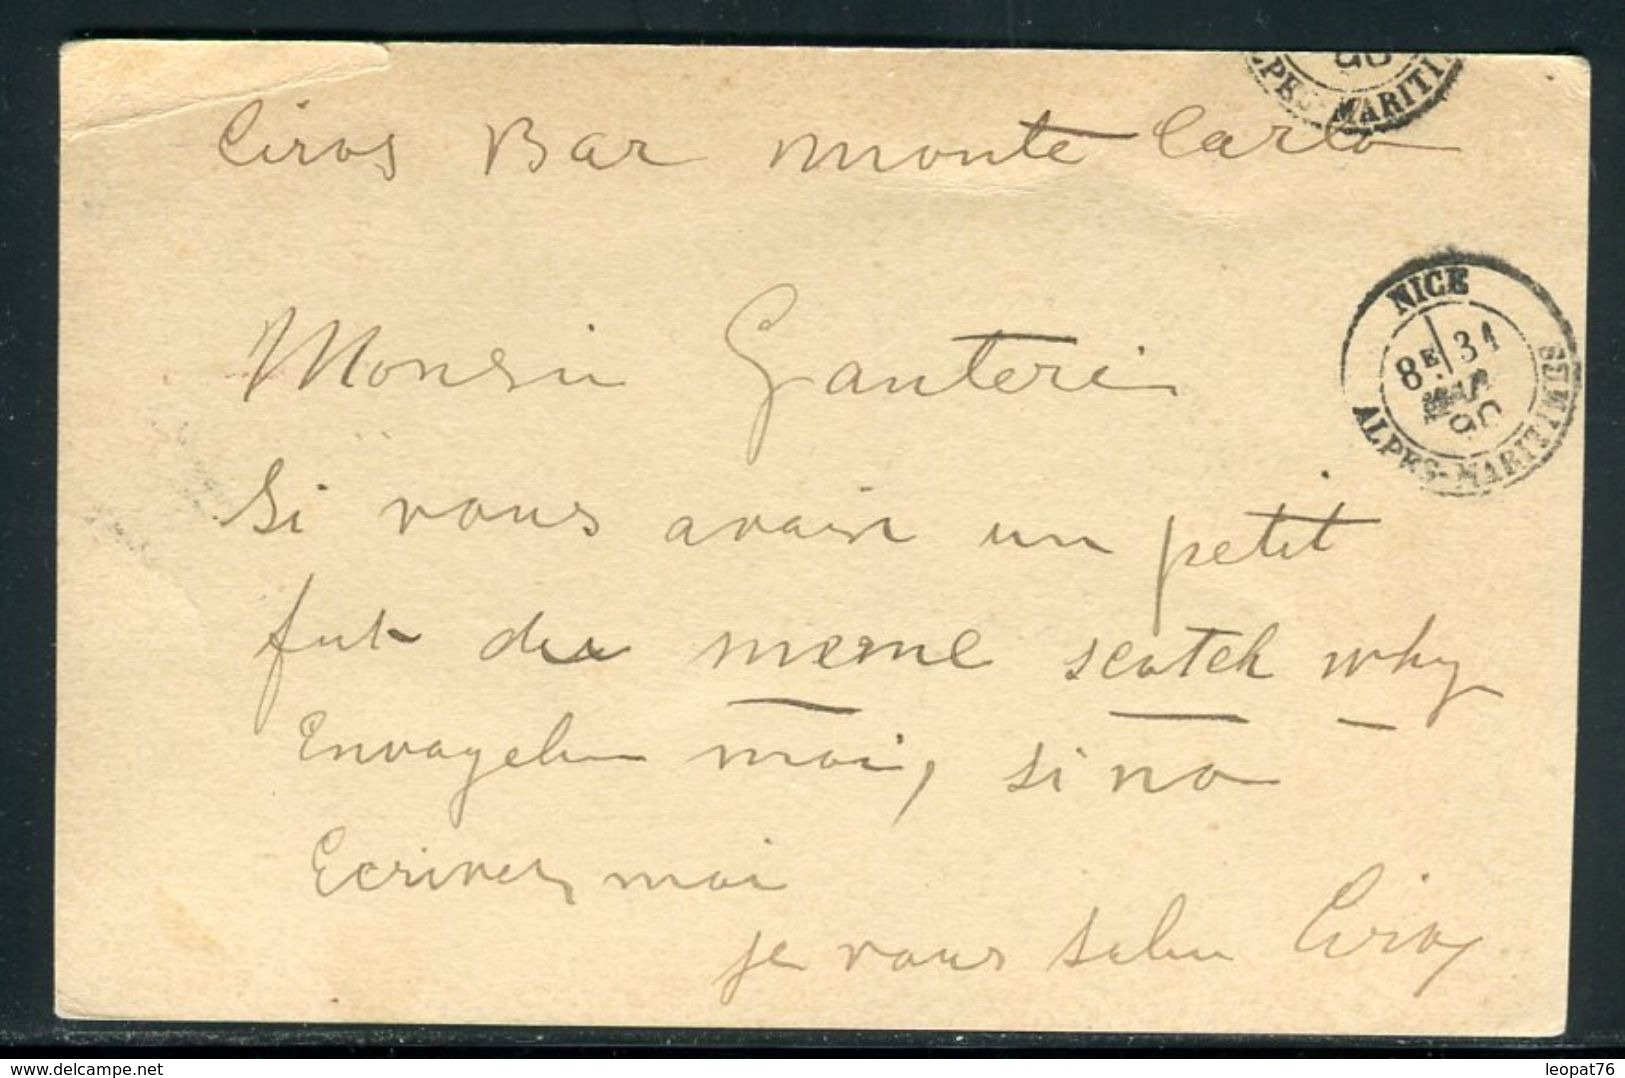 Ciros Bar monte Carlo
ALPES-MARITI
90
NICE
8E 31
MAR
90
ALPES-MARITIMES
Monsiu Gauteri
Si vous avais un petit
fut du meme scotch why
Envoyelu moi, si no
Ecrivez moi
je vous salu Ciros
www.delcampe.net
leopat76